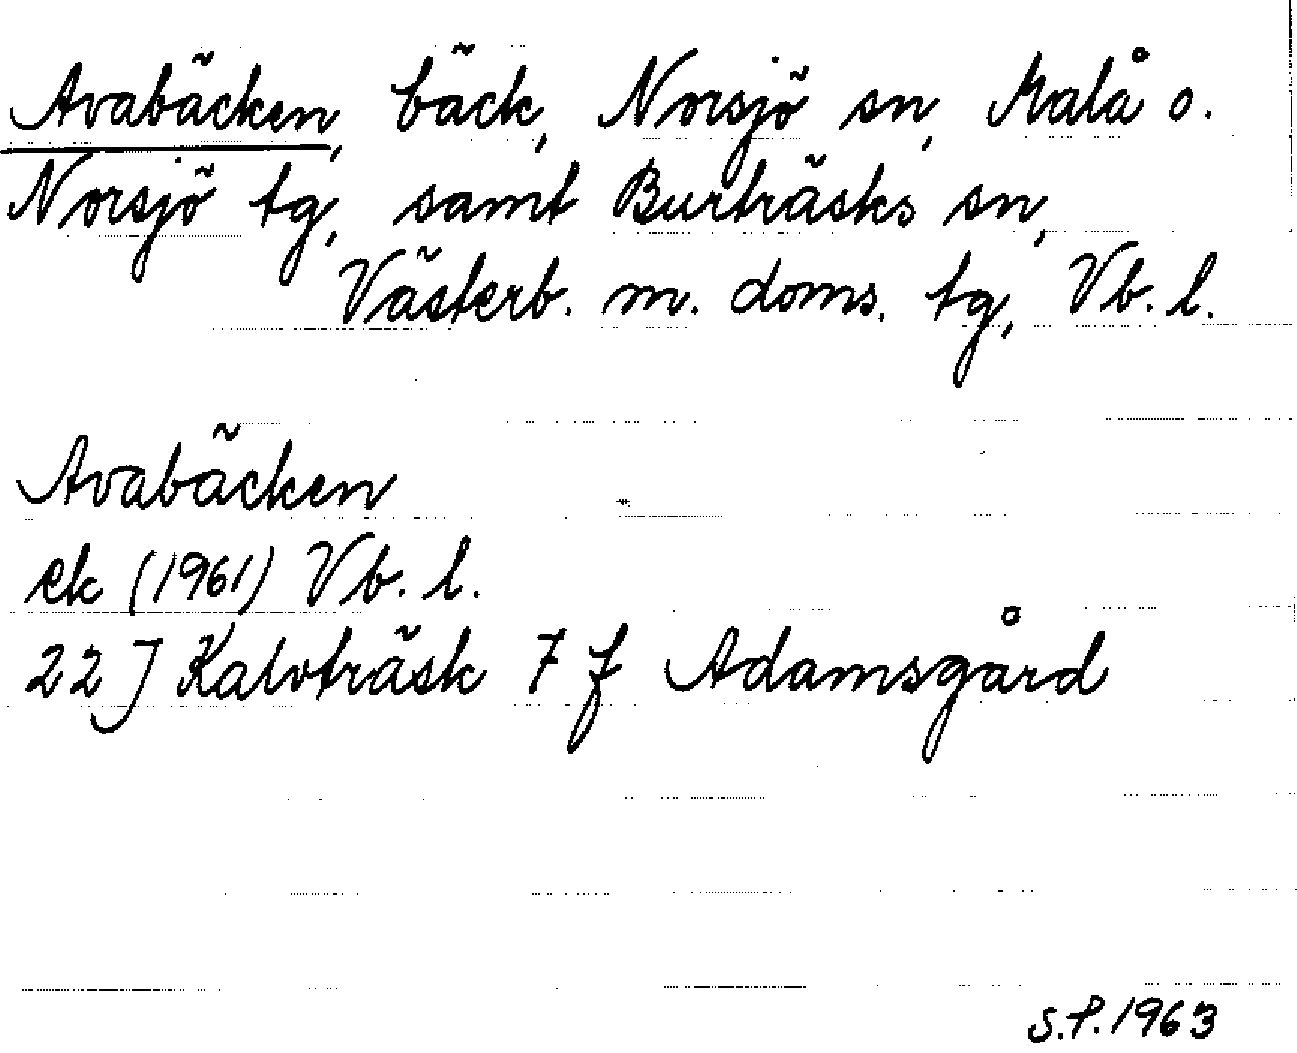 Avabäcken, bäck, Norsjö sn, Malå o.
Norsjö tg, samt Burträsks sn,
Västerb. m. doms. tg, Vb. l.
Avabäcken
ek (1961) Vb. l.
22 J Kalvträsk 7 f Adamsgård
S.P. 1963